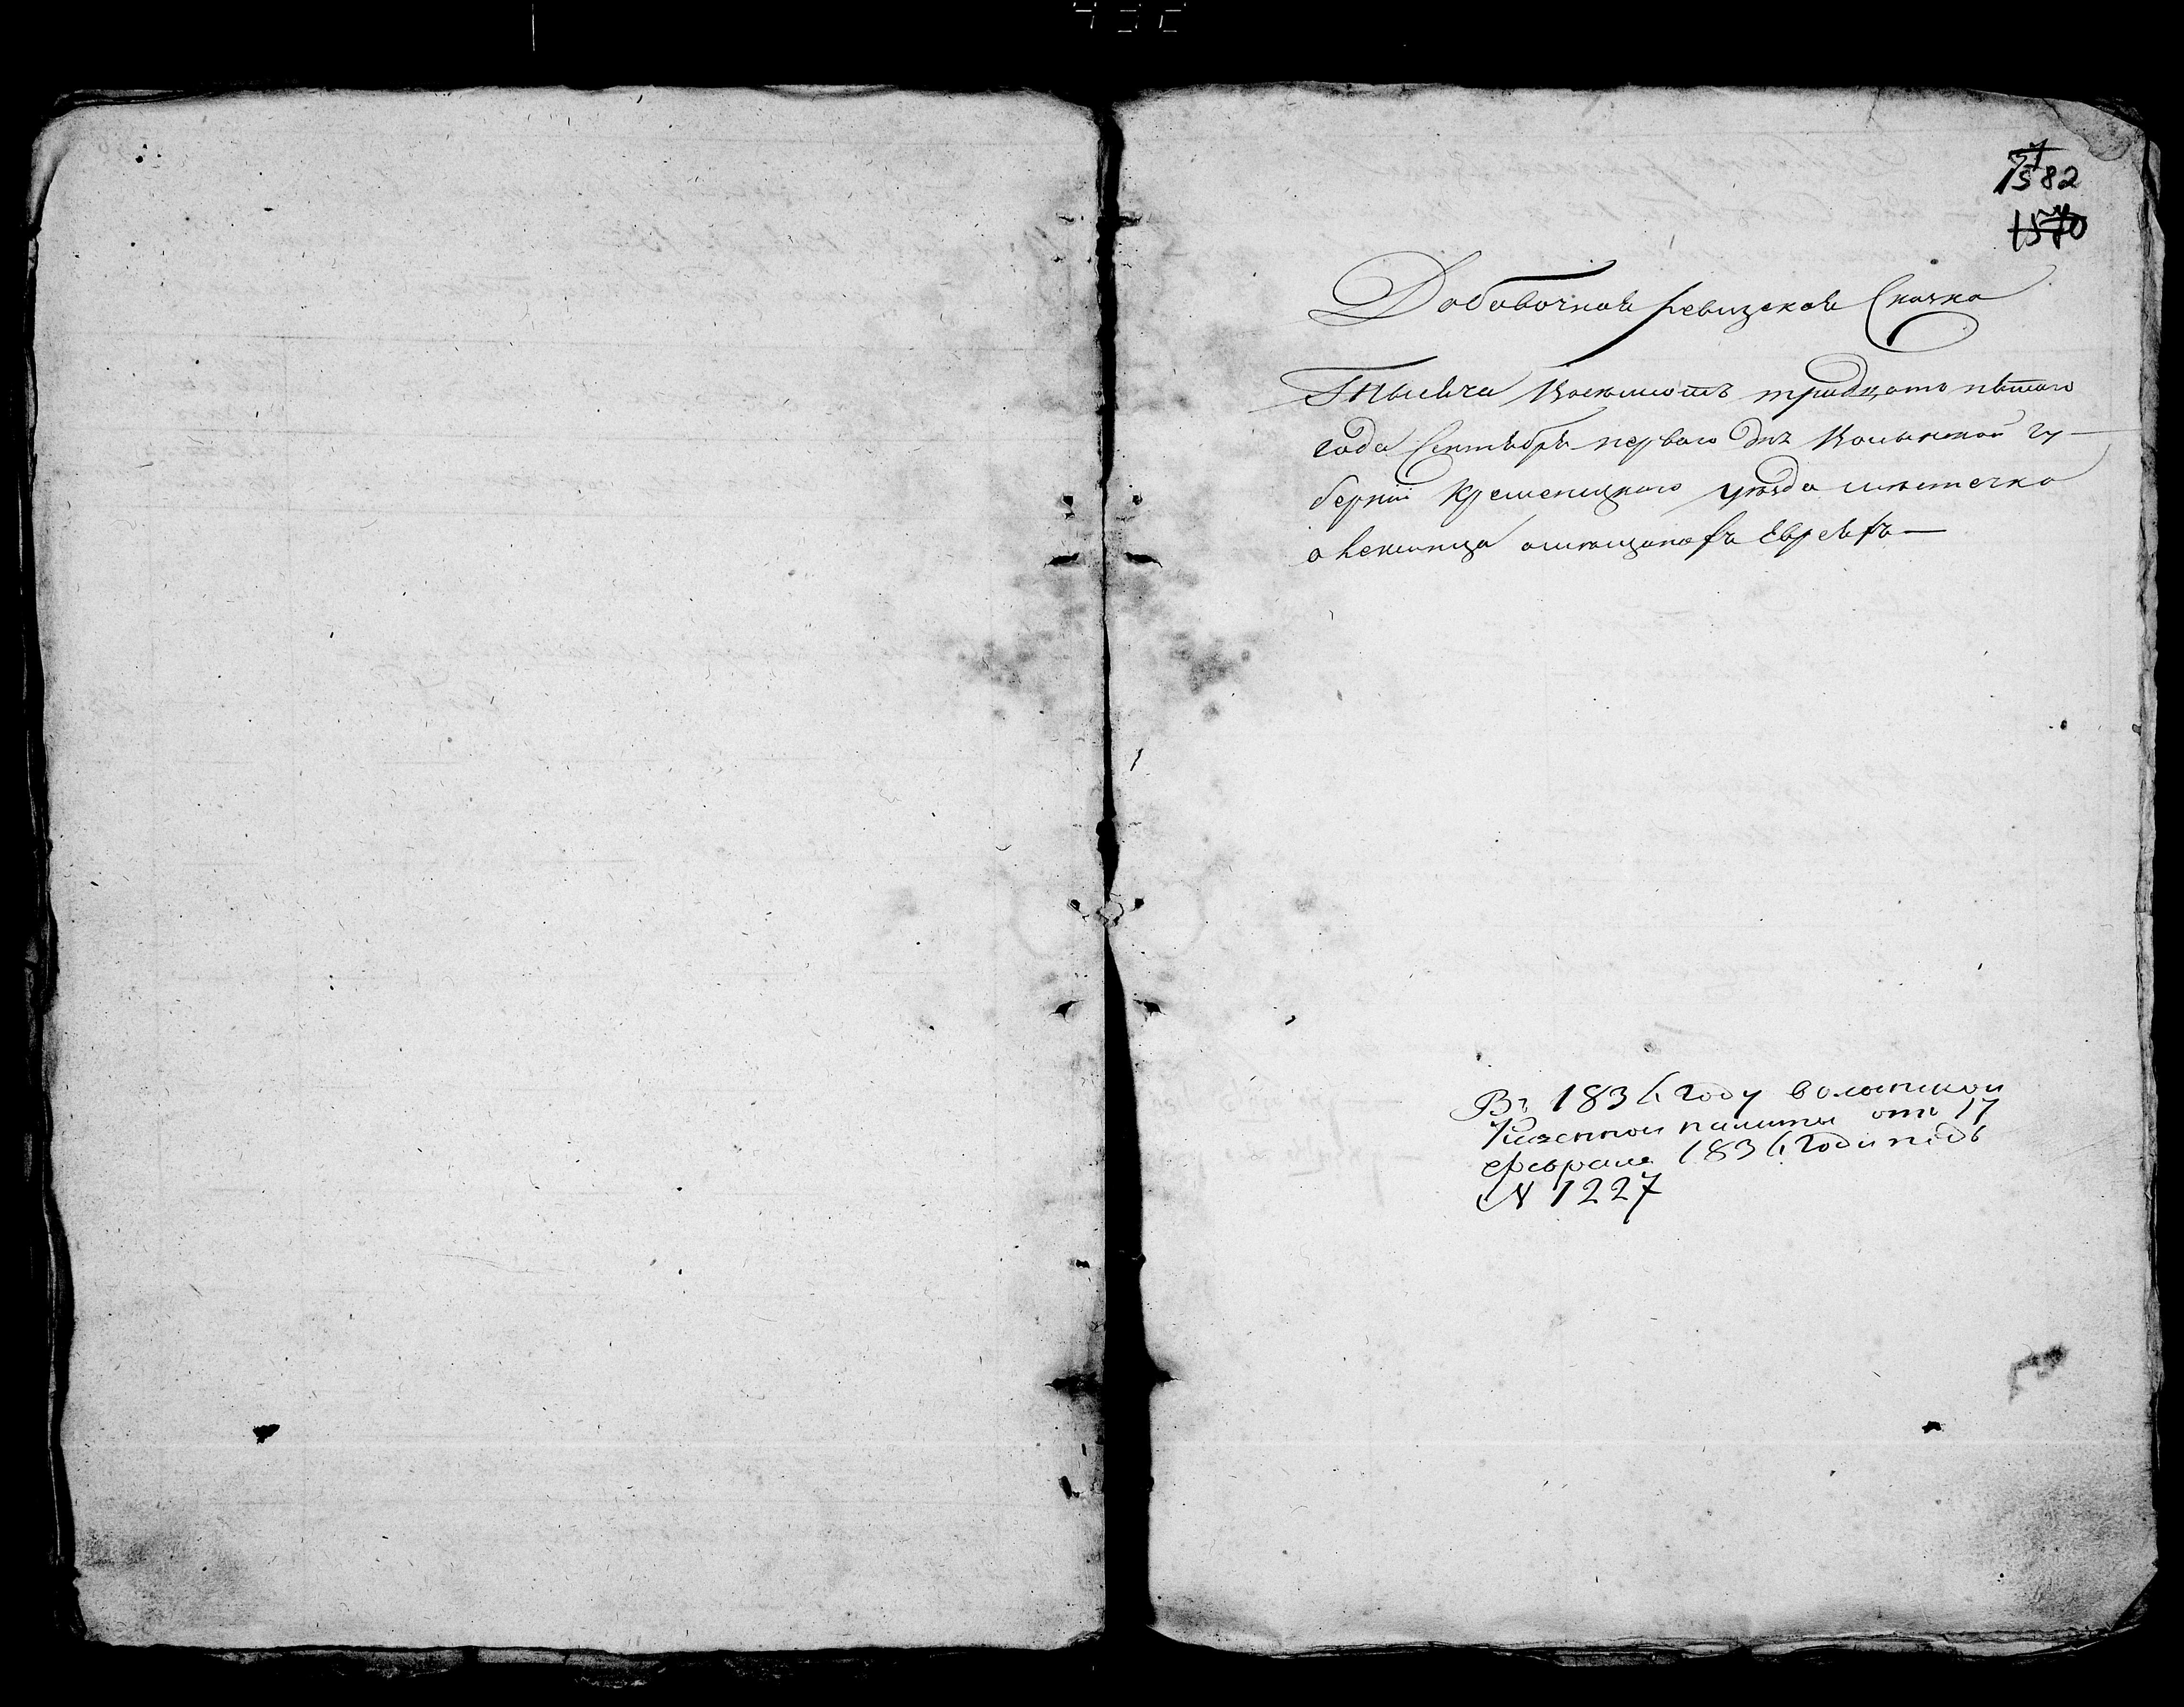 1582
1570
Добавочной ревизской Сказка
Тысяча восемьсотъ тридцать пятаго
года Сентября перваго дня Волынской гу-
берніи Кременецкаго уезда местечка
о мещанахъ Евреяхъ
Въ 1834 году волынской
Казенной палаты отъ 17
февраля 1834 года подъ
N 1227